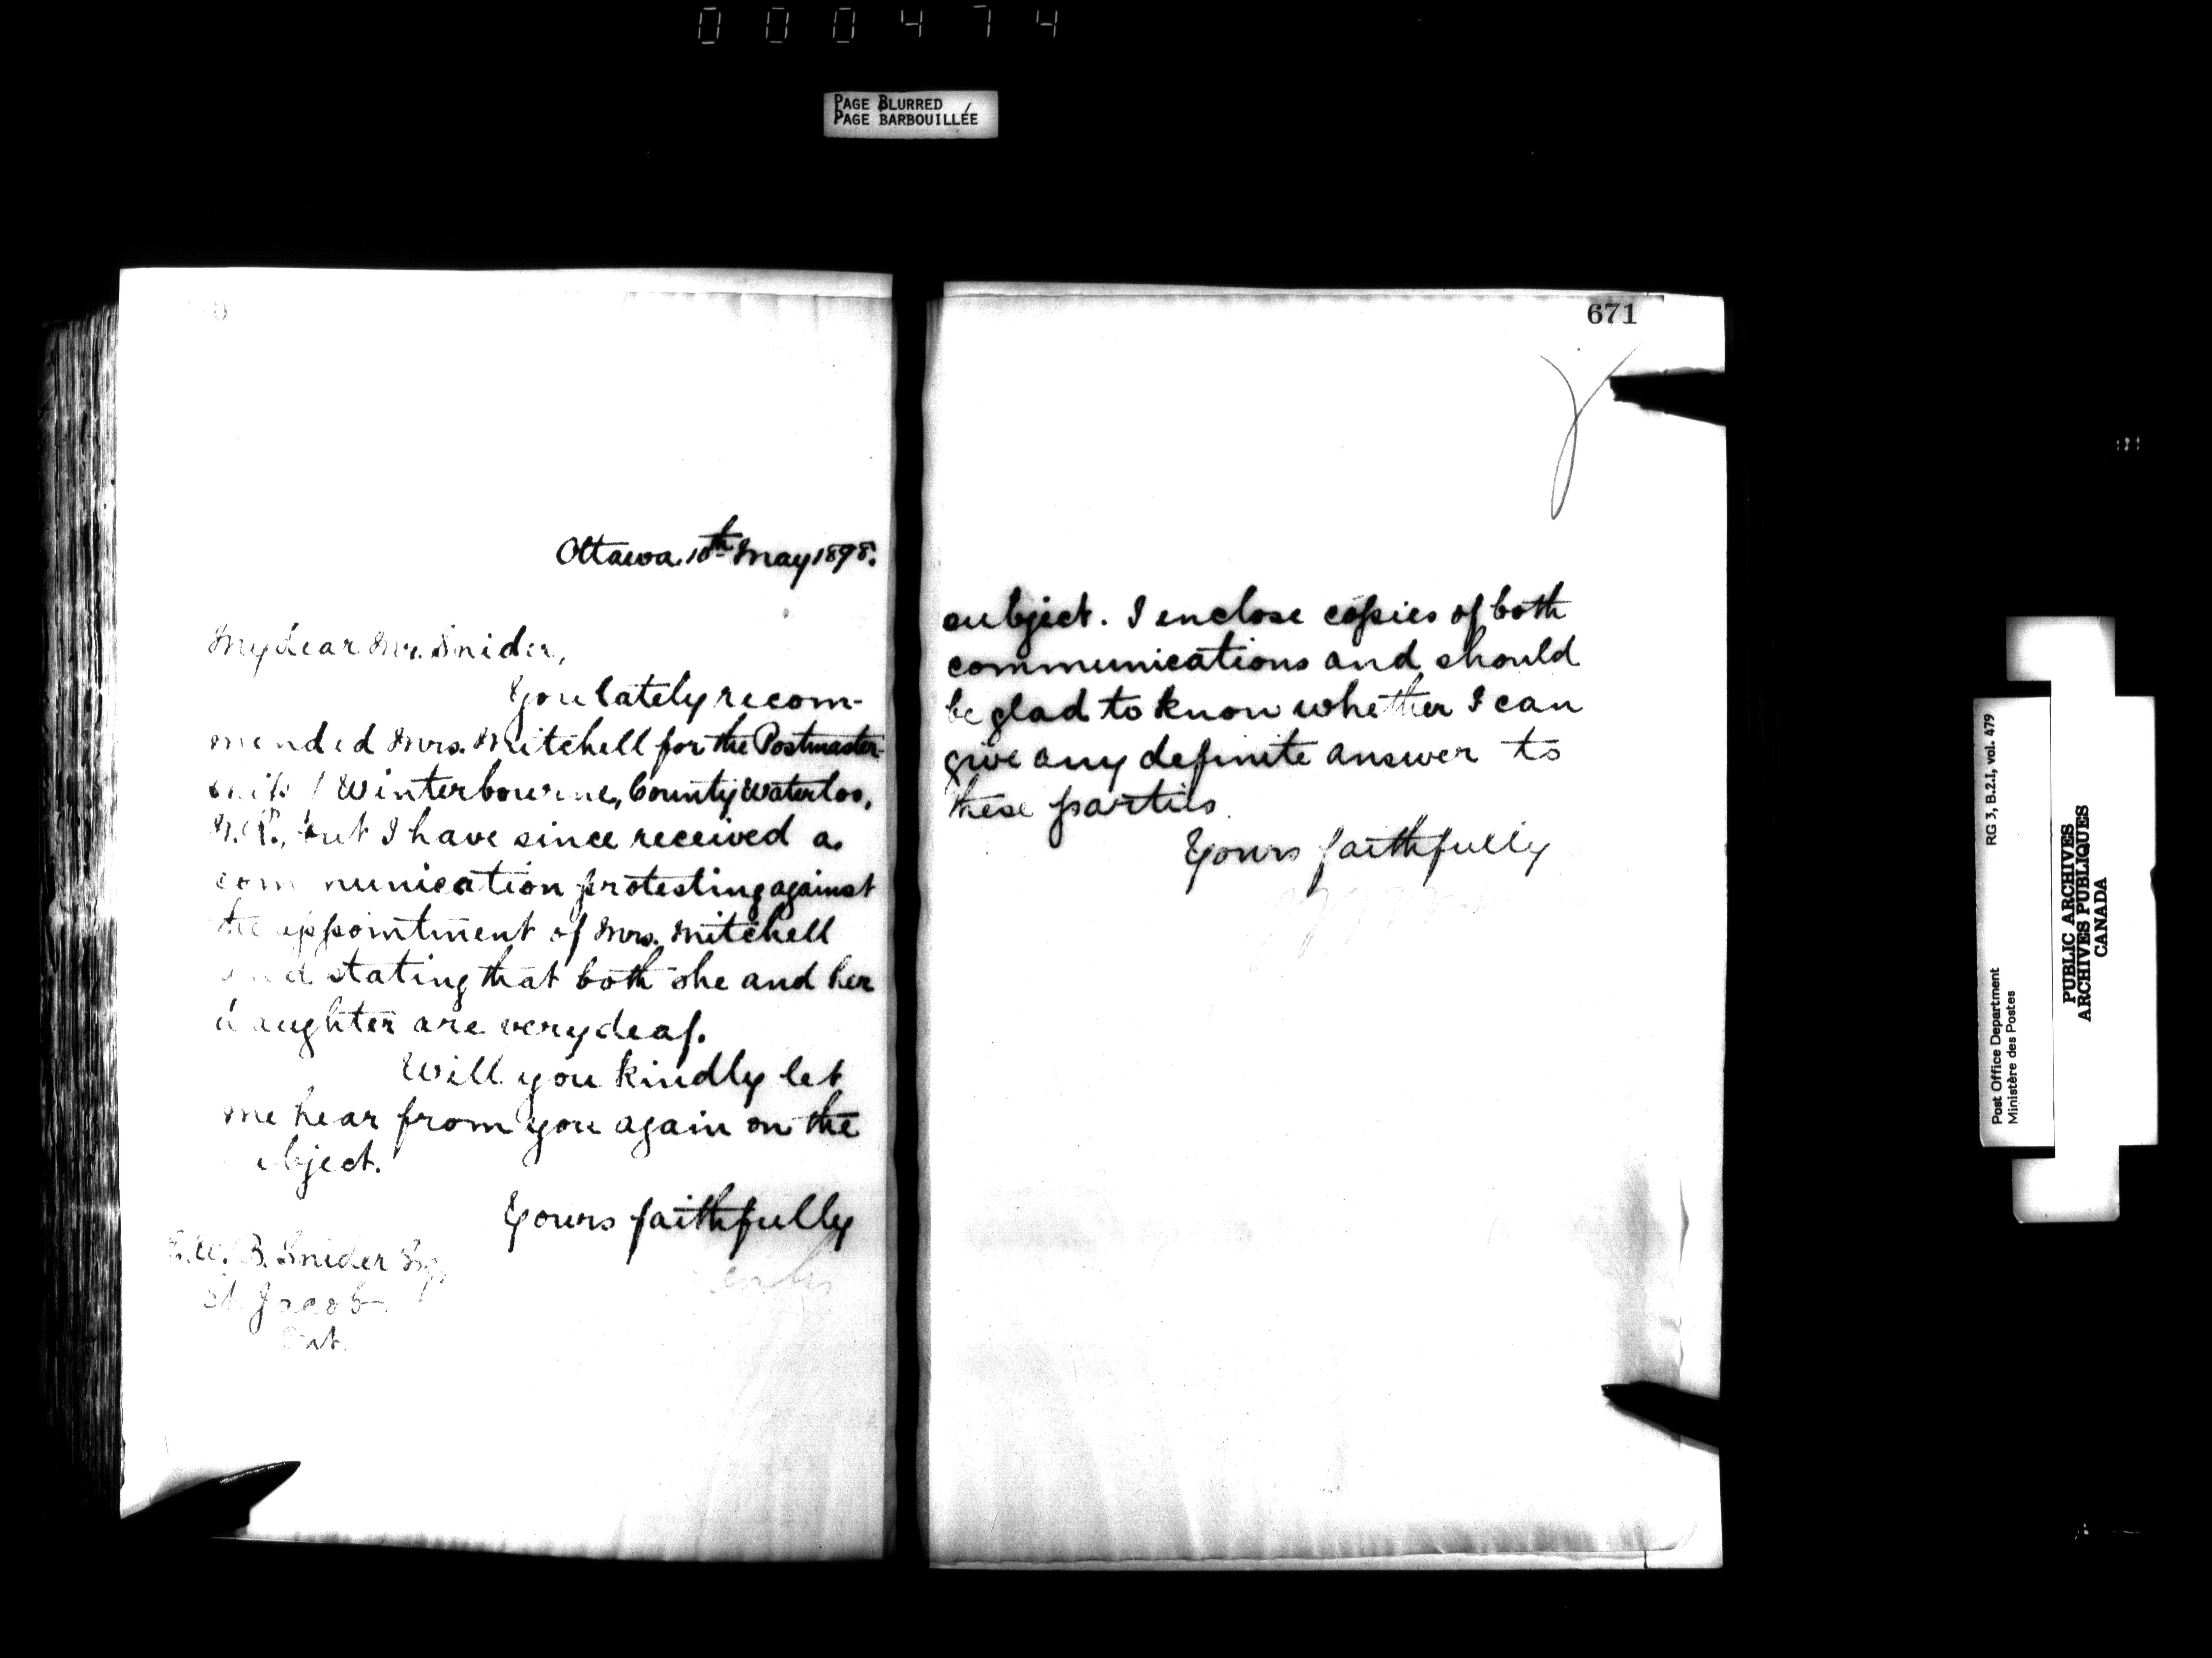 000474
PAGE BLURRED
PAGE BARBOUILLÉE
Ottawa 10th May 1898.
My dear Mr. Snider,
You lately recom-
mended Mrs. Mitchell for the Postmaster-
ship / Winterbourne, County Waterloo,
N.R., but I have since received a
communication protesting against
the appointment of Mrs. Mitchell
and stating that both she and her
daughter are very deaf.
Will you kindly let
me hear from you again on the
subject.
Yours faithfully
E.W.B. Snider Esq.
St. Jacobs
Ont.
671
subject. I enclose copies of both
communications and should
be glad to know whether I can
give any definite answer to
these parties.
Yours faithfully
Post Office Department
Ministère des Postes
RG 3, B.2.I, vol. 479
PUBLIC ARCHIVES
ARCHIVES PUBLIQUES
CANADA